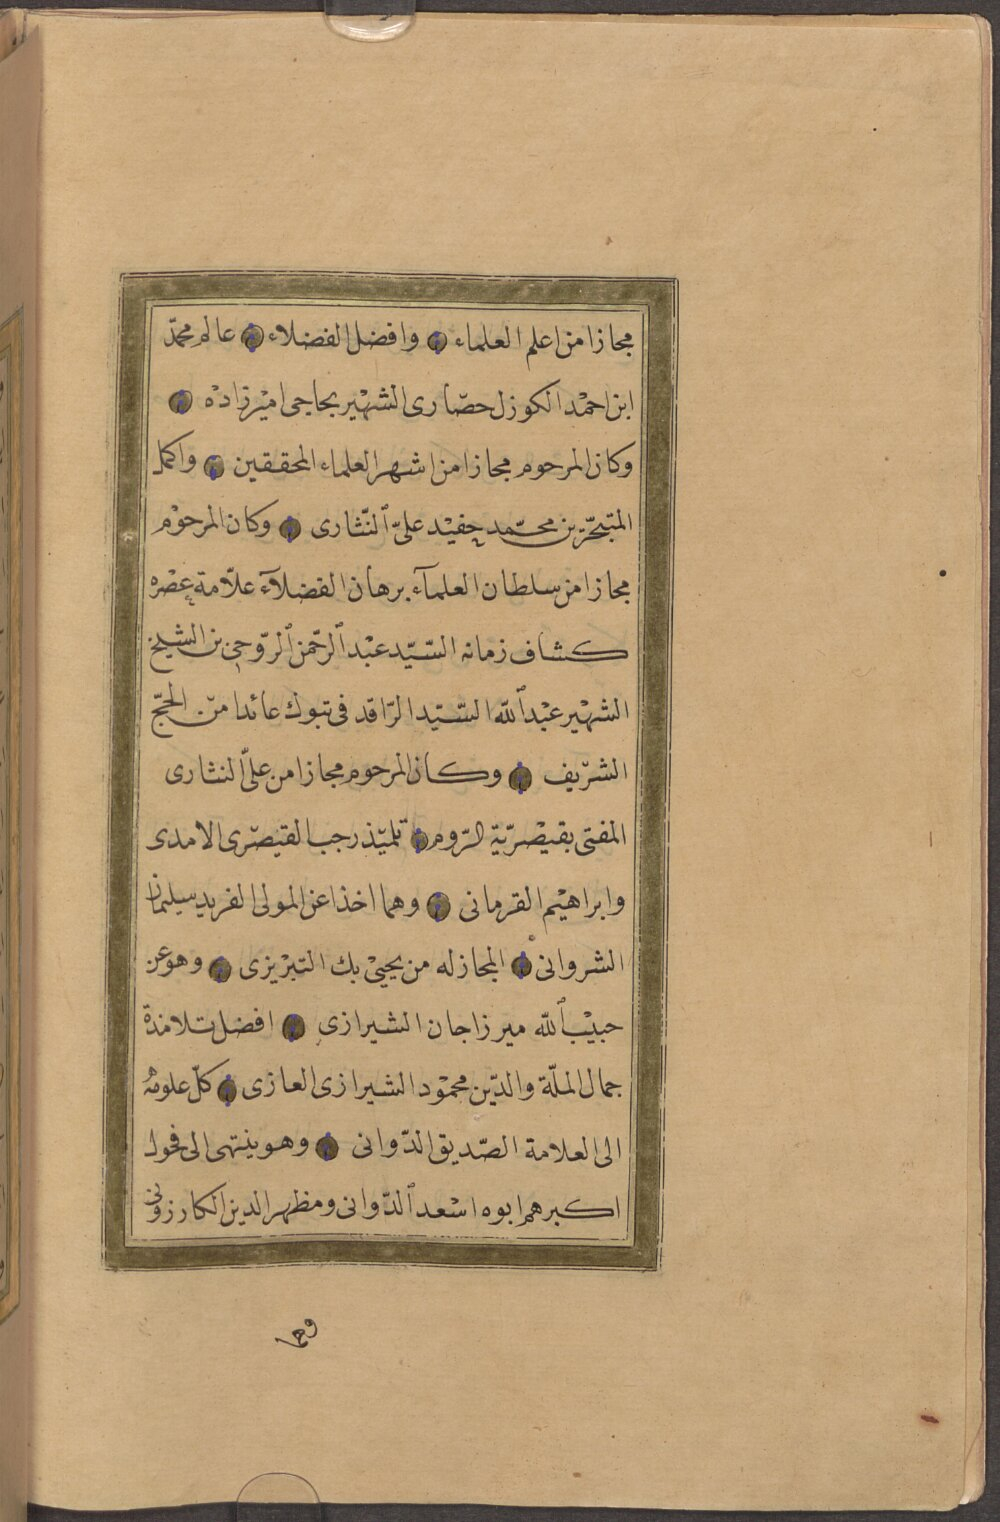 مجازا من اعلم العلماء وافضل الفضلاء عالم محمّد
ابن احمْد الكوزل حصّارى الشهيْر بحاجى اميْر زادْه
وكان المرحوم مجازا من اشهر العلماء المحققين واكمل
المتبحّرين محمّد حفيْد علىّ ٱلنّثارى وكان المرحوْم
مجازا من سلطان العلمآء برهان الفضلآء علّامة عصْره
كشاف زمانه السّيّد عبْد ٱلرحّمن ٱلرّوحى بن الشيخ
الشهيْر عبْد ٱللّه السّيّد الرّاقد فى تبوك عائدا من الحجّ
الشرّيف وكان المرحوم مجازا من علىّ النثارى
المفتى بقيْصرّية الرّوم تلميّذ رجب القيصّرى الامدى
وابراهيْم القرمانى وهما اخذا عن المولى الفريد سليمان
الشروانى المجاز له من يحيىْ بك التبْريزى وهو عن
حبيْب ٱللّه ميرزاجان الشيرازى افضل تلامذة
جمال الملّة والدّين محموْد الشيرازى العازى كلّ علومهُ
الى العلامة الصّديق الدّوانى وهو ينتهى الى فحول
اكبرهم ابوه اسْعد ٱلدّوانى ومظهر الدين الكازرونى